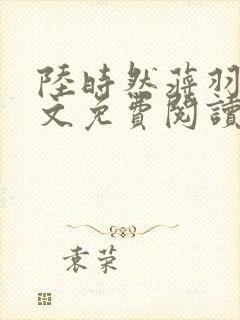 陸時然蒋羽
文免費閱讀
袁荣